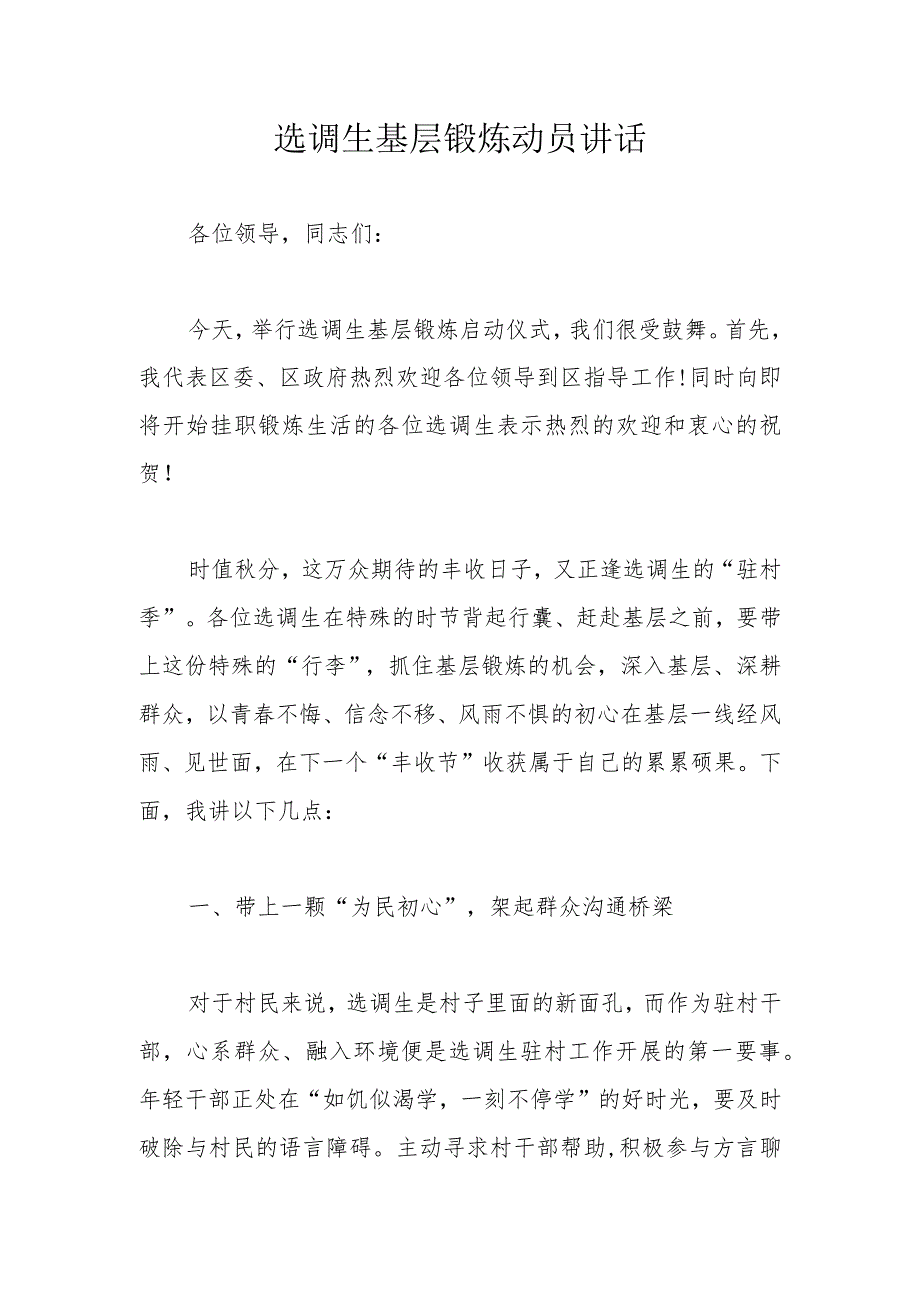 选调生基层锻炼动员讲话
各位领导，同志们：
今天，举行选调生基层锻炼启动仪式，我们很受鼓舞。首先，
我代表区委、区政府热烈欢迎各位领导到区指导工作!同时向即
将开始挂职锻炼生活的各位选调生表示热烈的欢迎和衷心的祝
贺！
时值秋分，这万众期待的丰收日子，又正逢选调生的“驻村
季”。各位选调生在特殊的时节背起行囊、赶赴基层之前，要带
上这份特殊的“行李”，抓住基层锻炼的机会，深入基层、深耕
群众，以青春不悔、信念不移、风雨不惧的初心在基层一线经风
雨、见世面，在下一个“丰收节”收获属于自己的累累硕果。下
面，我讲以下几点：
一、带上一颗“为民初心”，架起群众沟通桥梁
对于村民来说，选调生是村子里面的新面孔，而作为驻村干
部，心系群众、融入环境便是选调生驻村工作开展的第一要事。
年轻干部正处在“如饥似渴学，一刻不停学”的好时光，要及时
破除与村民的语言障碍。主动寻求村干部帮助,积极参与方言聊